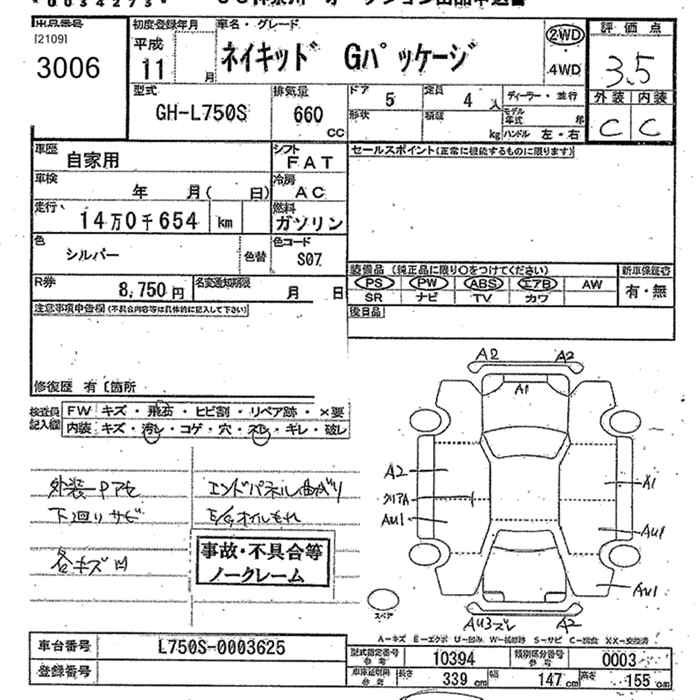 *0034273*
出品番号 [2109] 3006
初度登録年月 平成 11 月
車名・グレード ネイキッド Gパッケージ
2WD ・4WD
評価点 3.5
型式 GH-L750S
排気量 660 CC
ドア 5 定員 4 人 ディーラー・並行
形状 積載 kg モデル年式 年 ハンドル 左・右
外装 内装
C C
車歴 自家用
シフト FAT
セールスポイント(正常に機能するものに限ります)
車検 年 月( 日)
冷房 AC
走行、 14万0千654 km
燃料 ガソリン
色 シルバー 色替
色コード S07
装備品(純正品に限り○をつけてください) 新車保証書
PS PW ABS エアB AW 有・無
SR ナビ TV カワ
R券 8,750円 名変通知期限 月 日
後日品
注意事項申告欄(不具合内容等は具体的に記入して下さい)
修復歴 有 [箇所
検査員記入欄 FW キズ・飛石・ヒビ割・リペア跡・×要
内装 キズ・汚レ・コゲ・穴・スレ・キレ・破レ
A2 A2
A1
A2 A1
クリアA
AU1 AU1
AU1
AU3ズレ A2
スペア
外装一P アセ エンドパネル曲がり
下廻りサビ E/Gオイルもれ
各キズ凹
事故・不具合等
ノークレーム
A-キズ E-エクボ U-凹み W-補修跡 S-サビ C-腐食 XX-交換済
車台番号 L750S-0003625
型式指定番号 参考 10394 類別区分番号 参考 0003
登録番号
車庫証明用 参考 長さ 339 cm 幅 147 cm 高さ 155 cm